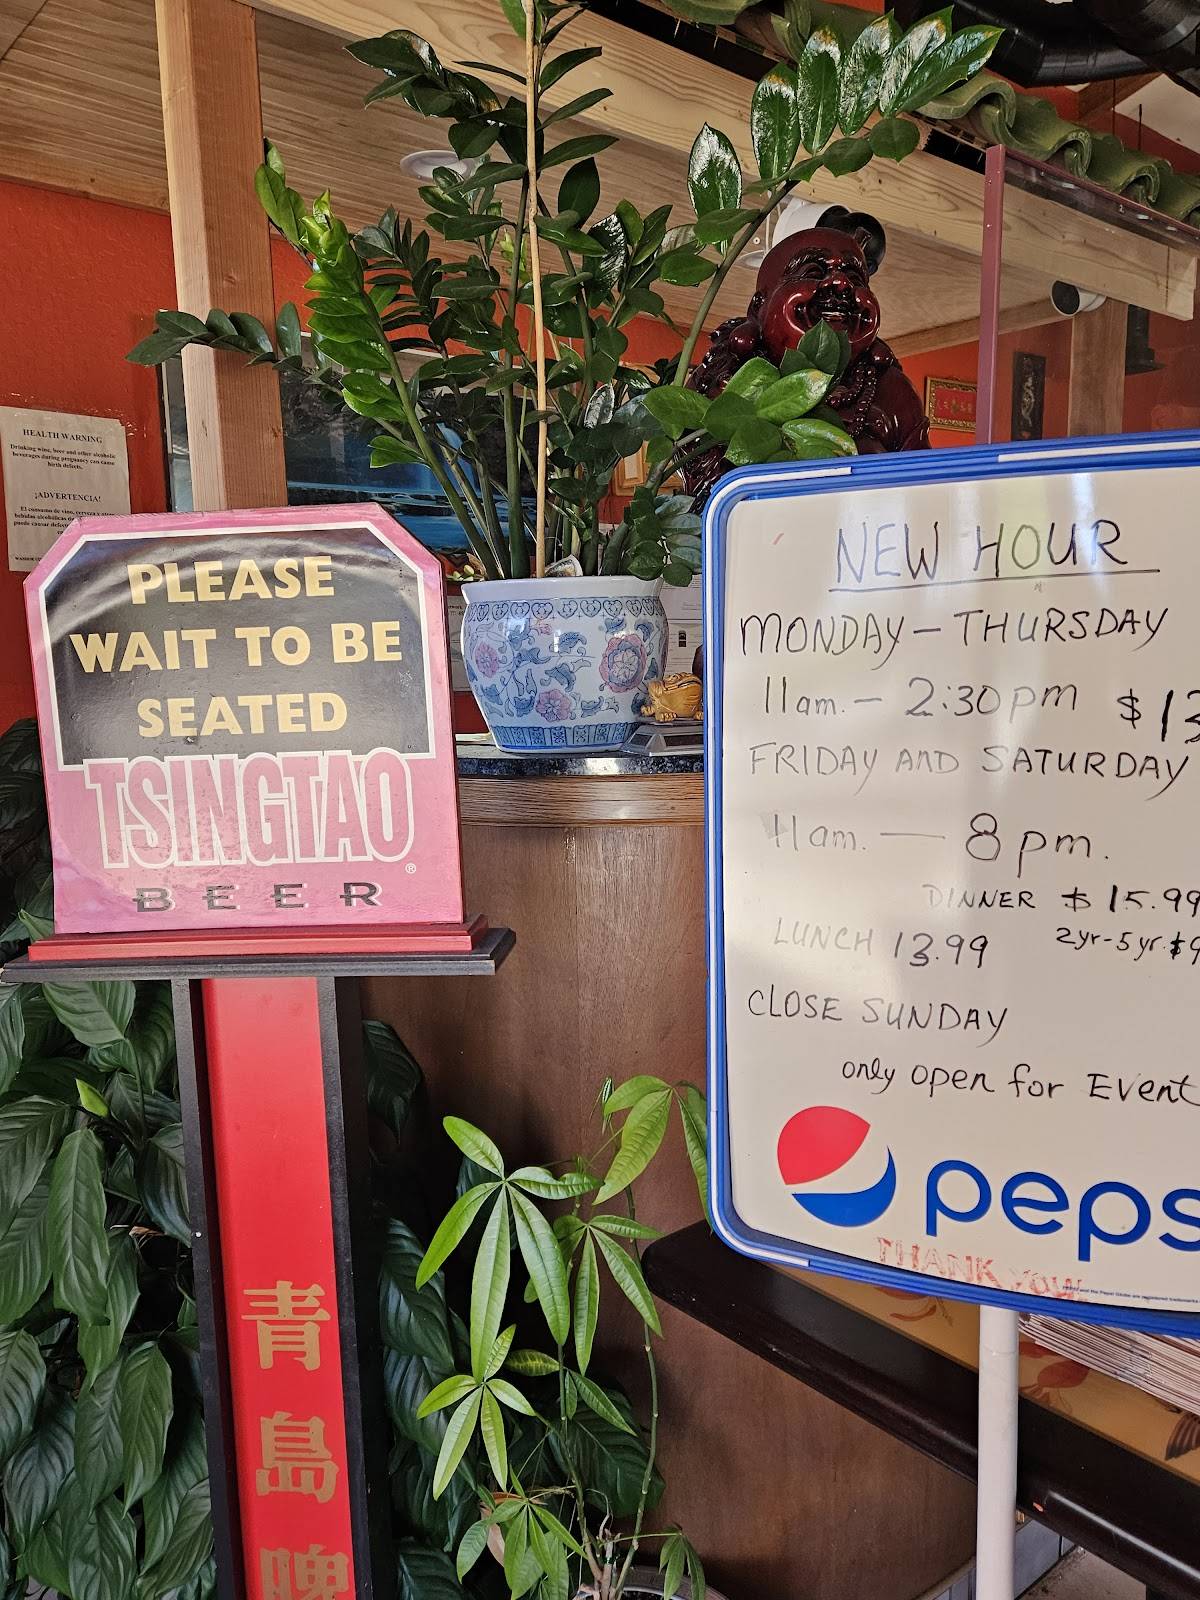 HEALTH WARNING
Drinking wine, beer and other alcoholic
beverages during pregnancy can cause
birth defects.
¡ADVERTENCIA!
El consumo de vino, cerveza y otras
bebidas alcohólicas
puede causar
PLEASE
WAIT TO BE
SEATED
TSINGTAO®
BEER
青
島
啤
NEW HOUR
MONDAY - THURSDAY
11am. - 2:30pm $13
FRIDAY AND SATURDAY
11am. — 8pm.
DINNER $15.99
LUNCH 13.99 2yr-5yr $9
CLOSE SUNDAY
only open for Event
peps
THANK YOU